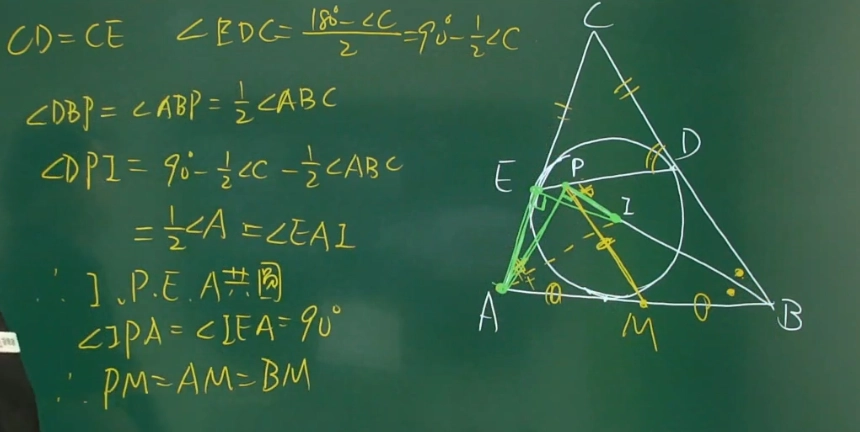 CD=CE ∠EDC=(180°-∠C)/2=90°-1/2∠C
∠DBP=∠ABP=1/2∠ABC
∠DPI=90°-1/2∠C-1/2∠ABC
=1/2∠A=∠EAI
∴I、P、E、A共圆
∠IPA=∠IEA=90°
∴PM=AM=BM
C
D
E
P
I
A
M
B